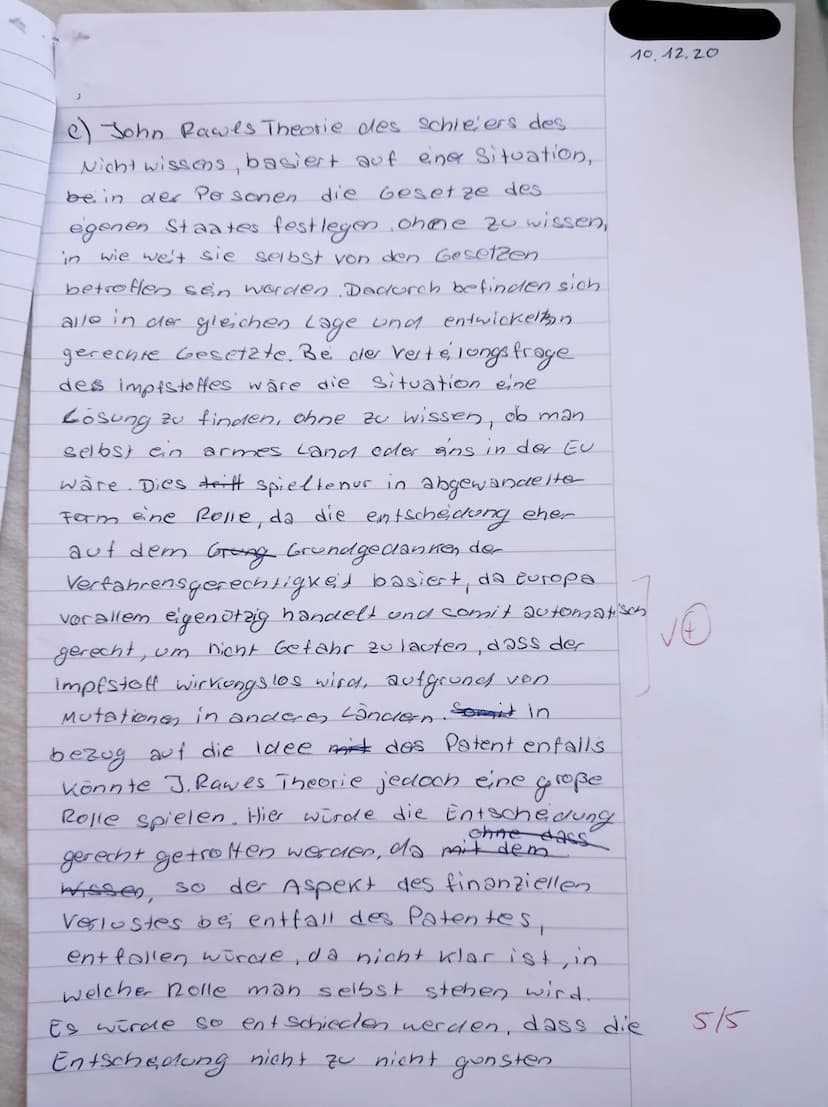 10.12.20
e) John Rawls Theorie des Schleiers des
Nichtwissens, basiert auf einer Situation,
be in der Personen die Gesetze des
eigenen Staates festlegen ohne zu wissen,
in wie weit sie selbst von den Gesetzen
betroffen sein werden. Dadurch befinden sich
alle in der gleichen Lage und entwickeln
gerechte Gesetzte. Bei der Verteilungsfrage
des Impfstoffes wäre die Situation eine
Lösung zu finden, ohne zu wissen, ob man
selbst ein armes Land oder eins in der EU
wäre. Dies trifft spielt nur in abgewandelter
Form eine Rolle, da die entscheidung eher
auf dem Grundgedanken der
Verfahrensgerechtigkeit basiert, da Europa
vorallem eigenützig handelt und somit automatisch
gerecht, um nicht Gefahr zu laufen, dass der
Impfstoff wirkungslos wird, aufgrund von
Mutationen in anderen Ländern. Somit in
bezug auf die Idee mit des Patentenfalls
könnte J. Rawls Theorie jedoch eine große
Rolle spielen. Hier würde die Entscheidung
ohne dass
gerecht getroffen werden, da mit dem
wissen, so der Aspekt des finanziellen
Verlustes bei entfall des Patentes,
entfallen würde, da nicht klar ist, in
welcher Rolle man selbst stehen wird.
Es würde so entschieden werden, dass die
Entscheidung nicht zu nicht gunsten
√+
5/5